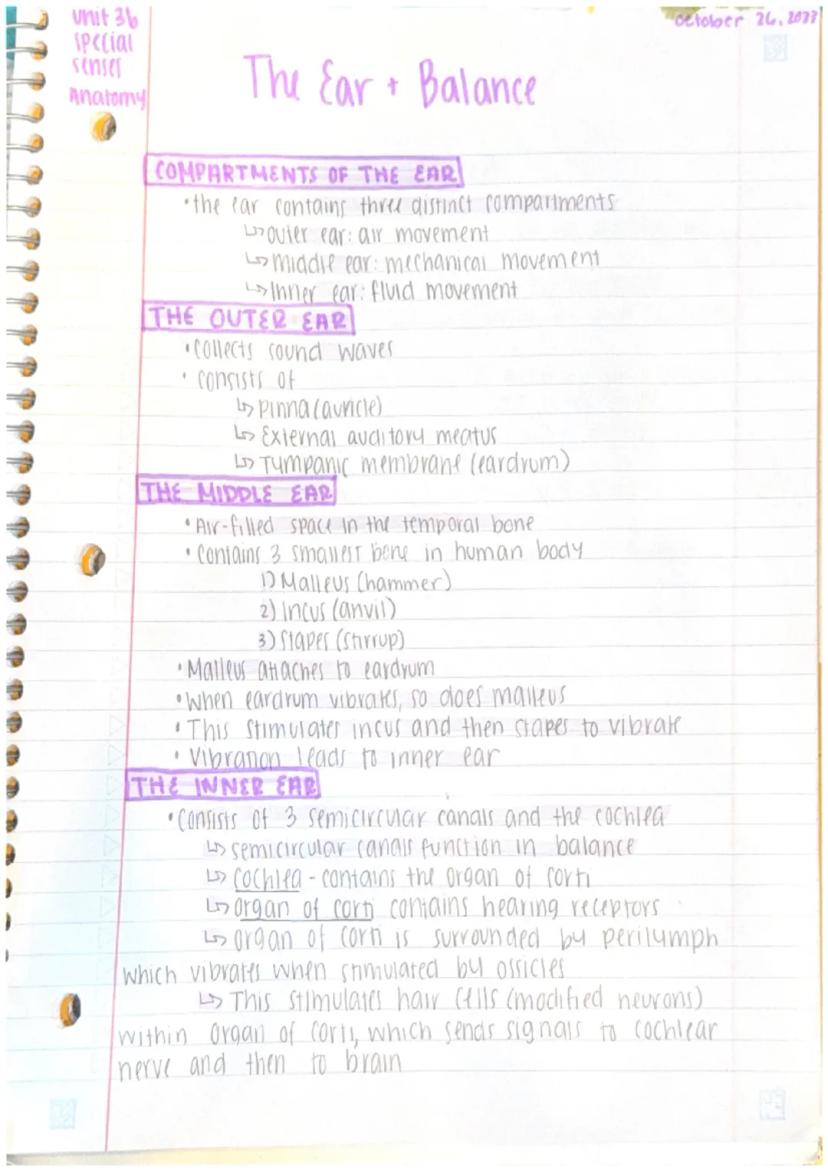 unit 3b
special
senses
Anatomy
October 26, 2023
The Ear + Balance
COMPARTMENTS OF THE EAR
• the ear contains three distinct compartments
↳ outer ear: air movement
↳ Middle ear: mechanical movement
↳ Inner ear: fluid movement
THE OUTER EAR
• collects sound waves
• consists of
↳ Pinna (auricle)
↳ External auditory meatus
↳ Tympanic membrane (eardrum)
THE MIDDLE EAR
• Air-filled space in the temporal bone
• Contains 3 smallest bone in human body
1) Malleus (hammer)
2) Incus (anvil)
3) Stapes (stirrup)
• Malleus attaches to eardrum
• When eardrum vibrates, so does malleus
• This stimulates incus and then stapes to vibrate
• Vibration leads to inner ear
THE INNER EAR
• Consists of 3 semicircular canals and the cochlea
↳ semicircular canals function in balance
↳ cochlea - contains the organ of corti
↳ organ of corti contains hearing receptors
↳ organ of corti is surrounded by perilumph
which vibrates when stimulated by ossicles
↳ This stimulates hair cells (modified neurons)
within organ of corti, which sends signals to cochlear
nerve and then to brain